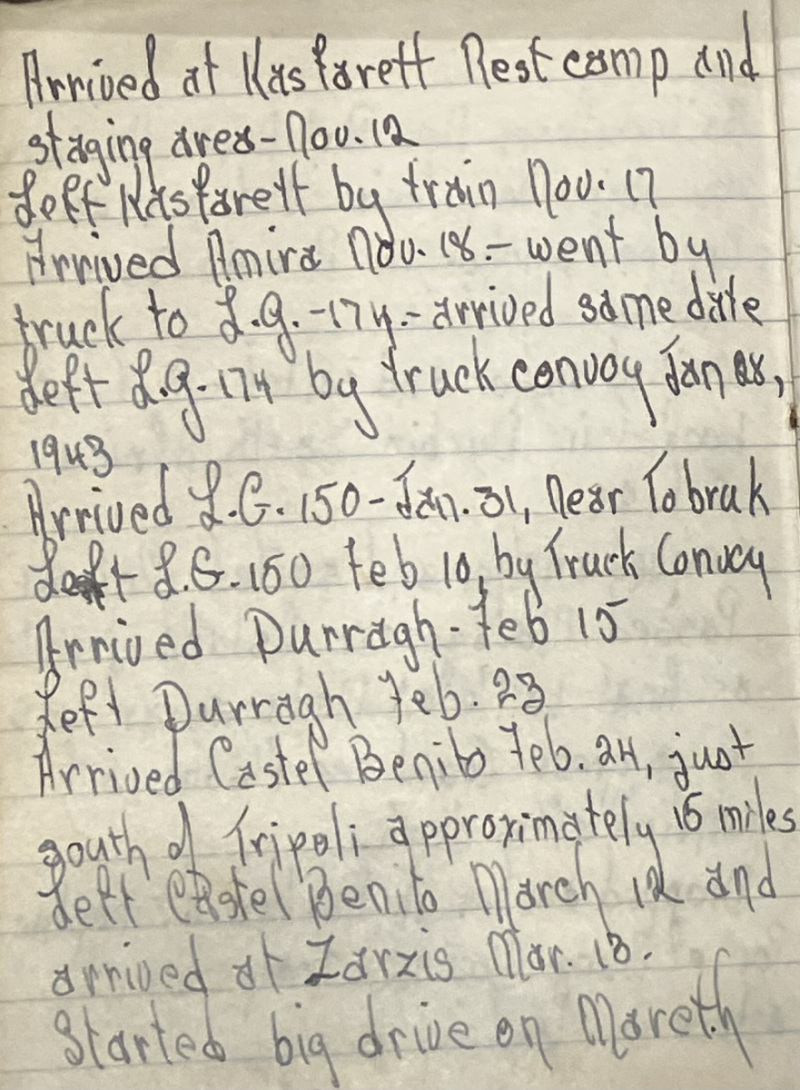 Arrived at Kasfarett Rest camp and
staging area - Nov. 12
Left Kasfarett by train Nov. 17
Arrived Amira Nov. 18. - went by
truck to L.G. - 174. - arrived same date
Left L.G. 174 by truck convoy Jan 28,
1943
Arrived L.G. 150 - Jan. 31, near Tobruk
Left L.G. 150 Feb 10, by Truck Convoy
Arrived Durragh - Feb 15
Left Durragh Feb. 23
Arrived Castel Benito Feb. 24, just
south of Tripoli approximately 15 miles
Left Castel Benito March 12 and
arrived at Zarzis Mar. 13.
Started big drive on Mareth